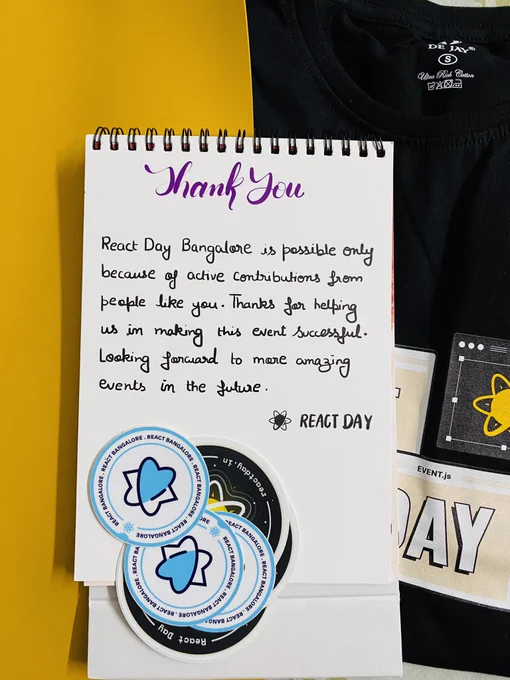 DE JAY®
S
Ultra Rich Cotton
Thank You
React Day Bangalore is possible only
because of active contributions from
people like you. Thanks for helping
us in making this event successful.
Looking forward to more amazing
events in the future.
REACT DAY
REACT BANGALORE . REACT BANGALORE . REACT BANGALORE . REACT BANGALORE
reactday.in
REACT BANGALORE . REACT BANGALORE
React Day
EVENT.js
DAY